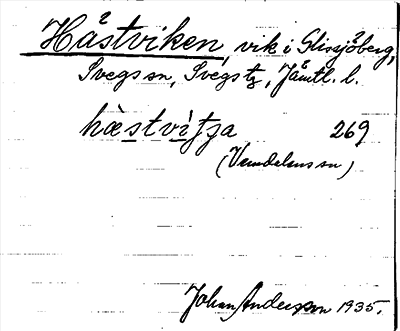 Hästviken, vik i Glissjöberg,
Svegs sn, Svegs tg, Jämtl. l.
hæ̀stvìtʃa 269
(Vemdalens sn)
Johan Anderson 1935.